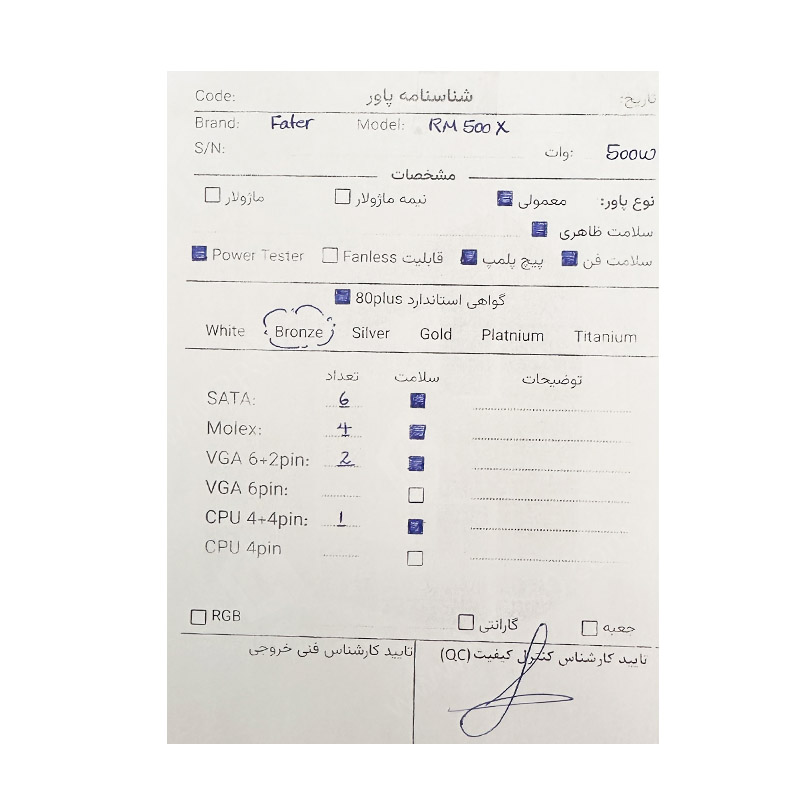 Code: شناسنامه پاور تاریخ:
Brand: Fater Model: RM 500 X
S/N: وات: 500W
مشخصات
نوع پاور: معمولی نیمه ماژولار ماژولار
سلامت ظاهری
سلامت فن پیچ پلمپ قابلیت Fanless Power Tester
گواهی استاندارد 80plus
White Bronze Silver Gold Platnium Titanium
تعداد سلامت توضیحات
SATA: 6
Molex: 4
VGA 6+2pin: 2
VGA 6pin:
CPU 4+4pin: 1
CPU 4pin
RGB گارانتی جعبه
تایید کارشناس کنترل کیفیت (QC) تایید کارشناس فنی خروجی